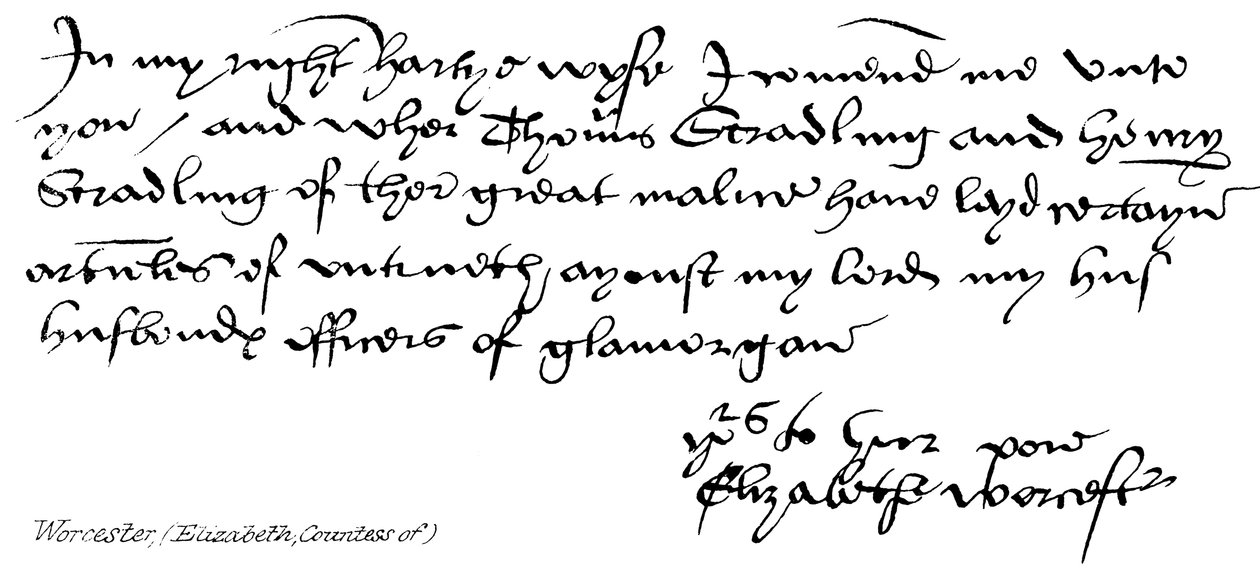 In my right hartye wyse I comend me unto
you / and wher Thoms Stradling and henry
Stradling of ther great malice have layd certayn
articles of untrueth, ayenst my lord my hus
husbondes officers of glamorgan
yors to hir power
Elizabethe Worcestr
Worcester, (Elizabeth, Countess of)